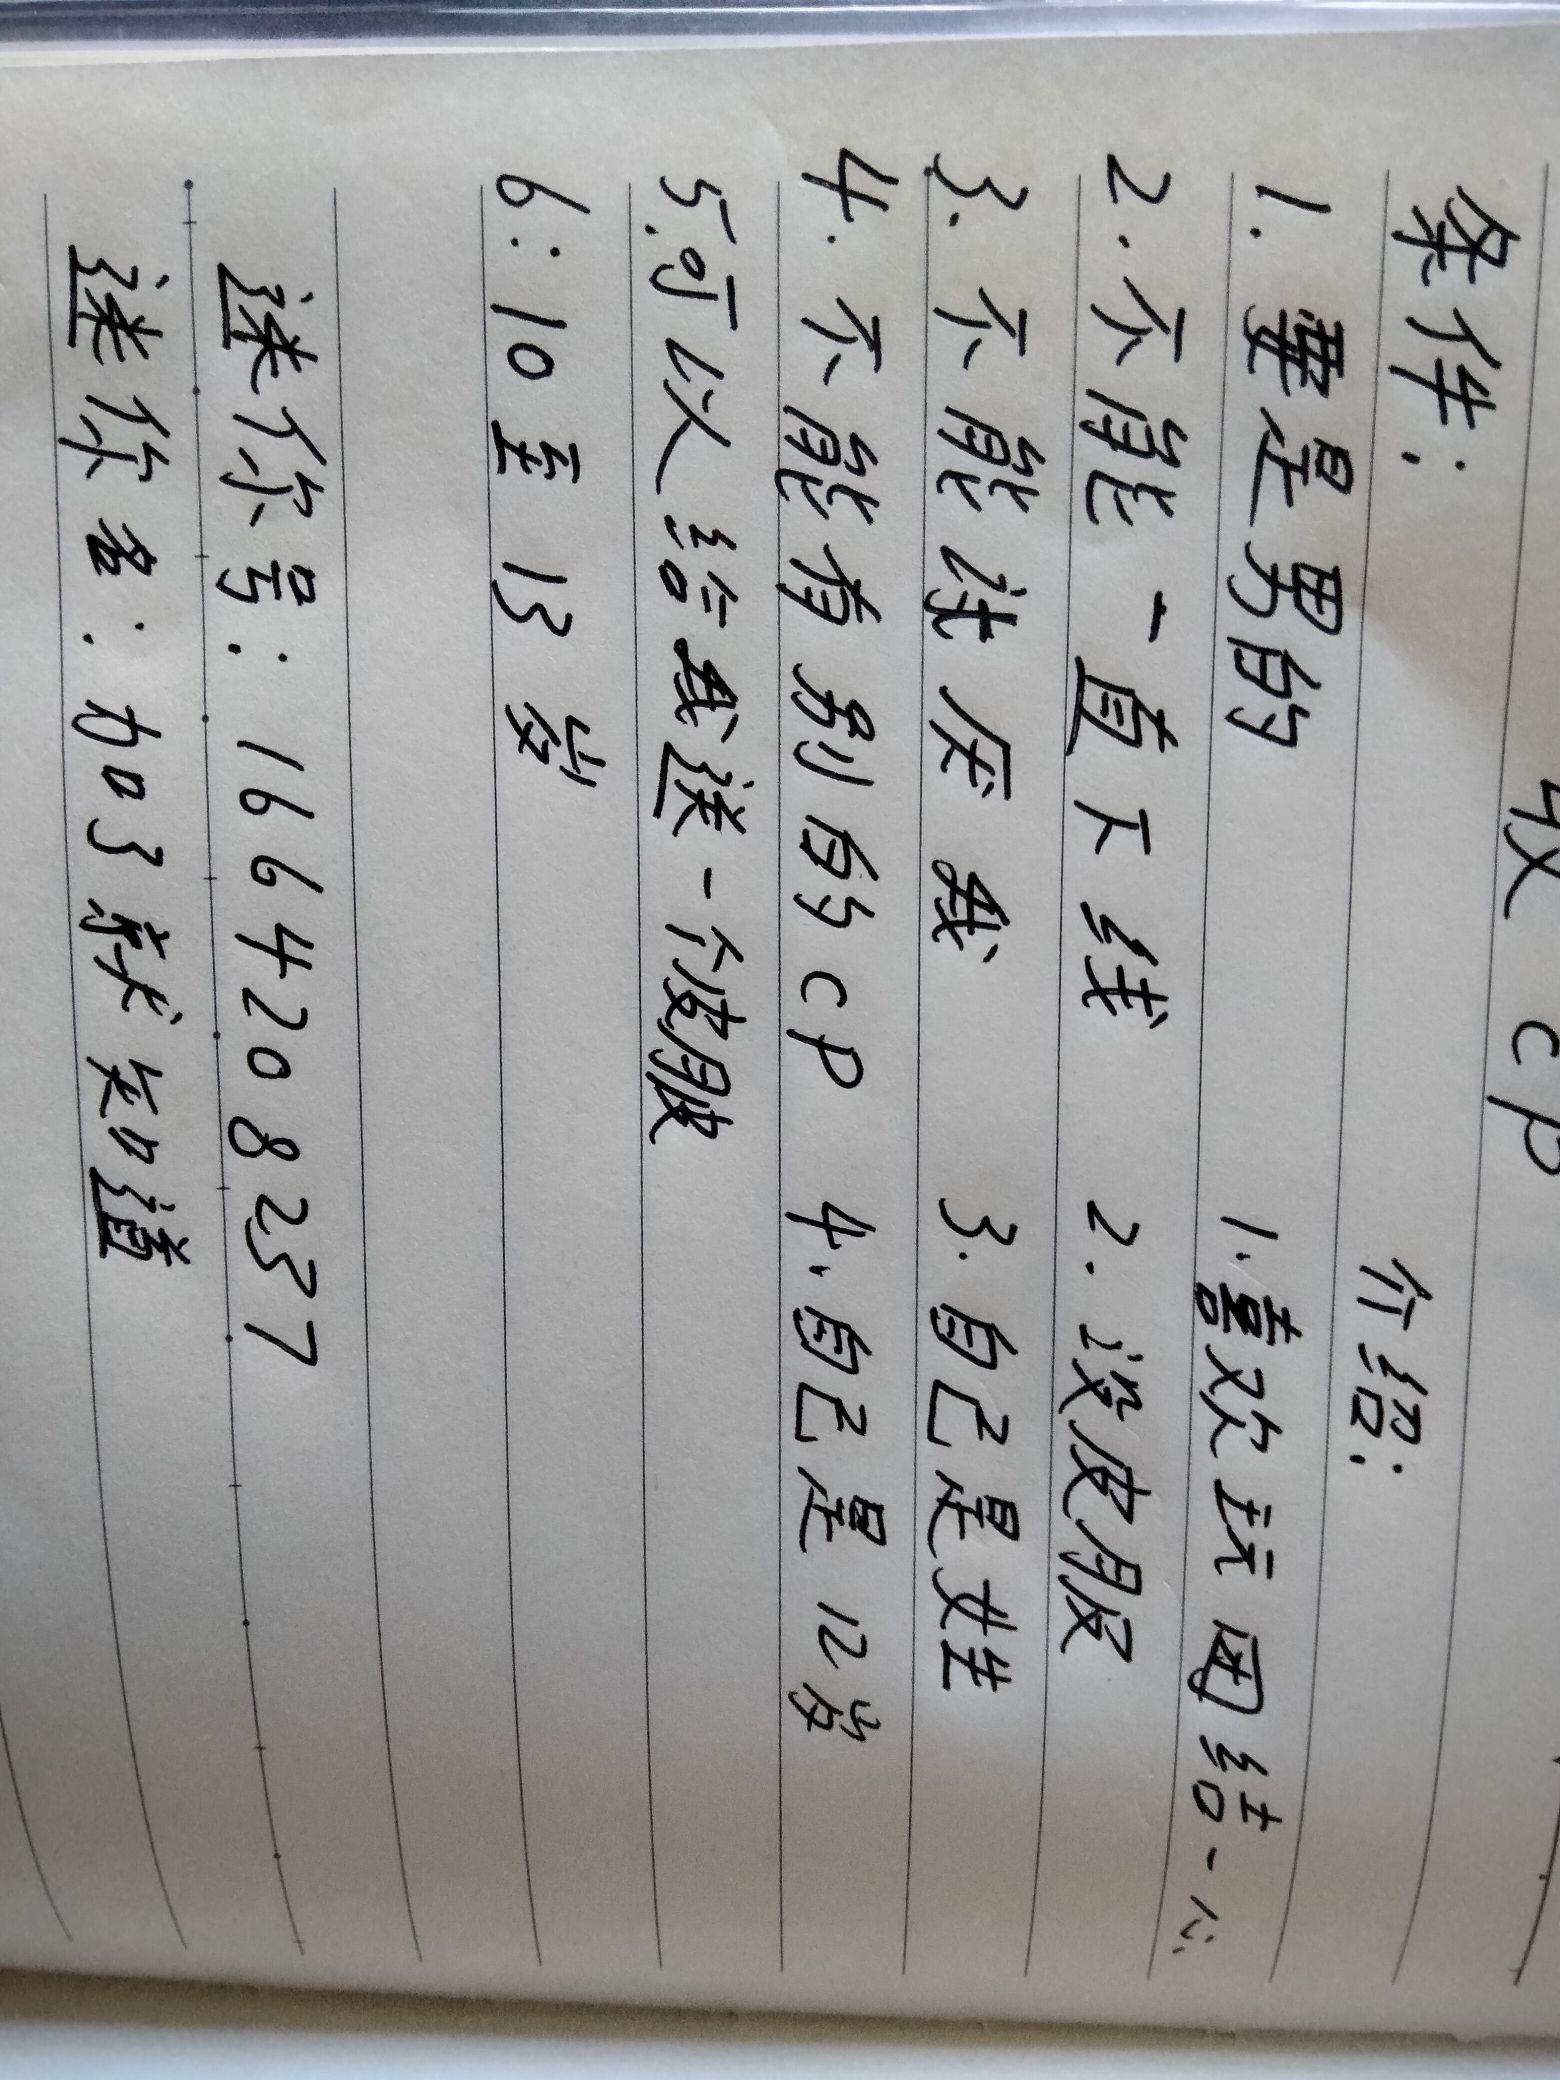 收 CP
条件： 介绍：
1. 要是男的 1.喜欢玩团结一心
2.不能一直下线 2.没皮肤
3. 不能讨厌我 3.自己是女生
4. 不能有别的CP 4.自己是12岁
5.可以给我送一个皮肤
6:10至13岁
迷你号:1664208237
迷你名:加03就知道